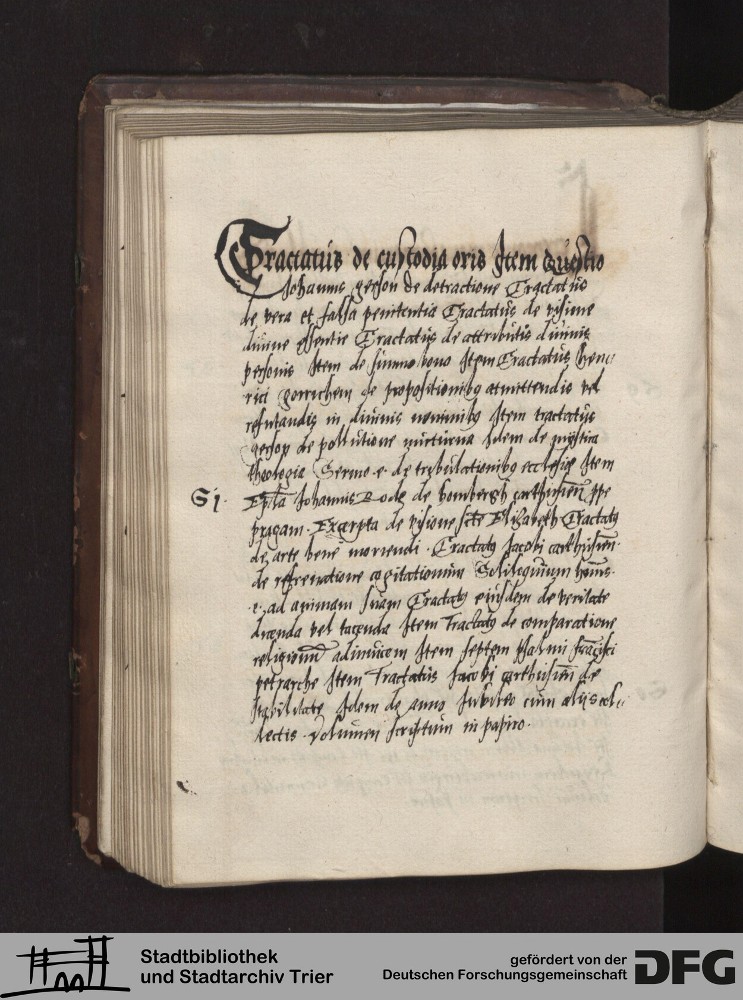 Tractatus de custodia oris Item Questio
Johannis gerson de detractione Tractatus
de vera et falsa penitentia Tractatus de visione
divine essentie Tractatus de attributis divinis
personis Item de summo bono Item Tractatus hen-
rici gorrichem de propositionibus atmittendis vel
refutandis in divinis nominibus Item tractatus
gerson de pollutione nocturna Idem de mystica
theologia Sermo e. de tribulationibus ecclesie Item
S j. Epla Johannis Rode de hombergh carthusien ppe
pragam. Exarpta de visione scte Elizabeth Tractatus
de arte bene moriendi. Tractatus Jacobi carthusien.
de refrenatione cogitationum Soliloquium
e. ad animam suam Tractatus eiusdem de veritate
dicenda vel tacenda Item Tractatus de comparatione
religionum adinvicem Item septem psalmi francisci
petrarche Item Tractatus Jacobi carthusien de
stabilitate Idem de anno Jubileo cum aliis col-
lectis. Volumen scriptum in papiro.
Stadtbibliothek
und Stadtarchiv Trier
gefördert von der
Deutschen Forschungsgemeinschaft
DFG